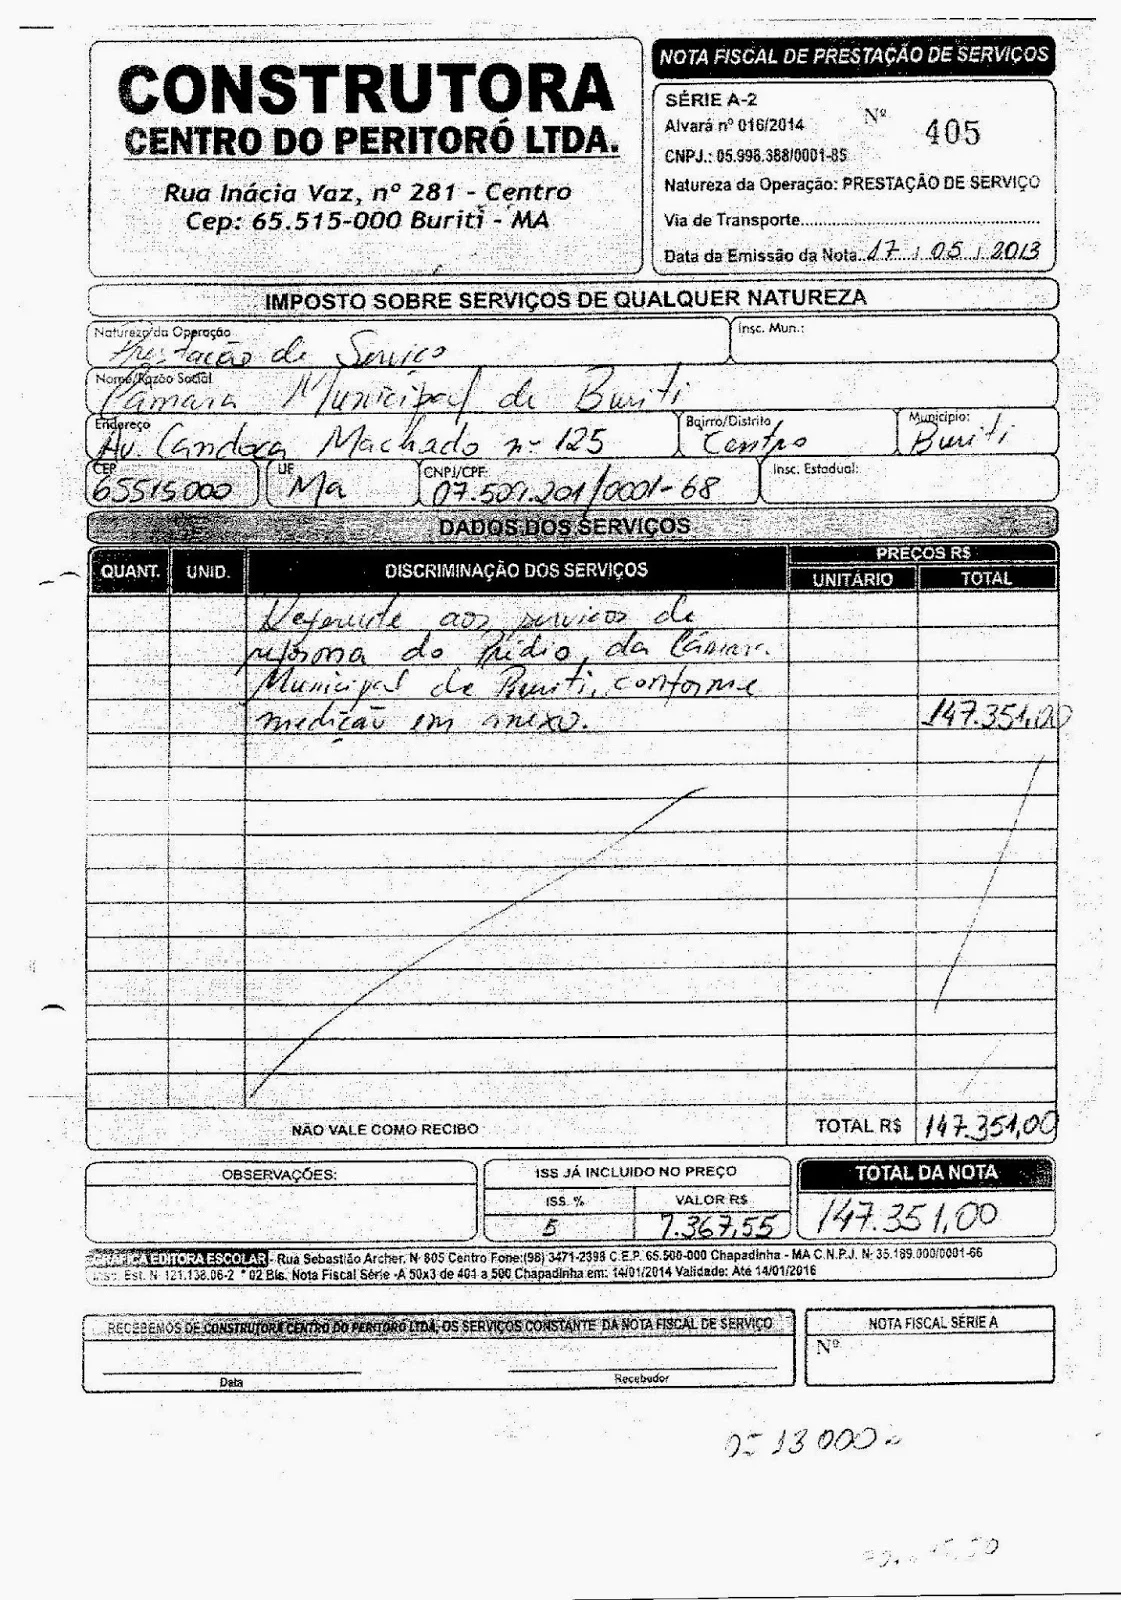 CONSTRUTORA
CENTRO DO PERITORÓ LTDA.
Rua Inácia Vaz, nº 281 - Centro
Cep: 65.515-000 Buriti - MA
NOTA FISCAL DE PRESTAÇÃO DE SERVIÇOS
SÉRIE A-2
Alvará nº 016/2014
Nº 405
CNPJ.: 05.998.388/0001-85
Natureza da Operação: PRESTAÇÃO DE SERVIÇO
Via de Transporte
Data da Emissão da Nota. 17 / 05 / 2013
IMPOSTO SOBRE SERVIÇOS DE QUALQUER NATUREZA
Natureza da Operação
Insc. Mun.:
Prestação de Serviço
Nome/Razão Social
Câmara Municipal de Buriti
Endereço
Bairro/Distrito
Município:
Av. Candoca Machado nº 125
Centro
Buriti
CEP
UF
CNPJ/CPF
Insc. Estadual:
65515000
Ma
07.509.201/0001-68
DADOS DOS SERVIÇOS
QUANT.
UNID.
DISCRIMINAÇÃO DOS SERVIÇOS
PREÇOS R$
UNITÁRIO
TOTAL
Referente aos serviços de
reforma do Prédio da Câmara
Municipal de Buriti, conforme
medição em anexo.
147.351,00
NÃO VALE COMO RECIBO
TOTAL R$
147.351,00
OBSERVAÇÕES:
ISS JÁ INCLUIDO NO PREÇO
ISS. %
VALOR R$
5
7.367,55
TOTAL DA NOTA
147.351,00
GRÁFICA EDITORA ESCOLAR - Rua Sebastião Archer, N· 605 Centro Fone:(98) 3471-2398 C.E.P. 65.500-000 Chapadinha - MA C.N.P.J. N· 35.189.000/0001-66
Insc. Est. N· 121.138.06-2 * 02 Bls. Nota Fiscal Série -A 50x3 de 401 a 500 Chapadinha em: 14/01/2014 Validade: Até 14/01/2016
RECEBEMOS DE CONSTRUTORA CENTRO DO PERITORÓ LTDA, OS SERVIÇOS CONSTANTE DA NOTA FISCAL DE SERVIÇO
Data
Recebedor
NOTA FISCAL SÉRIE A
Nº
13000